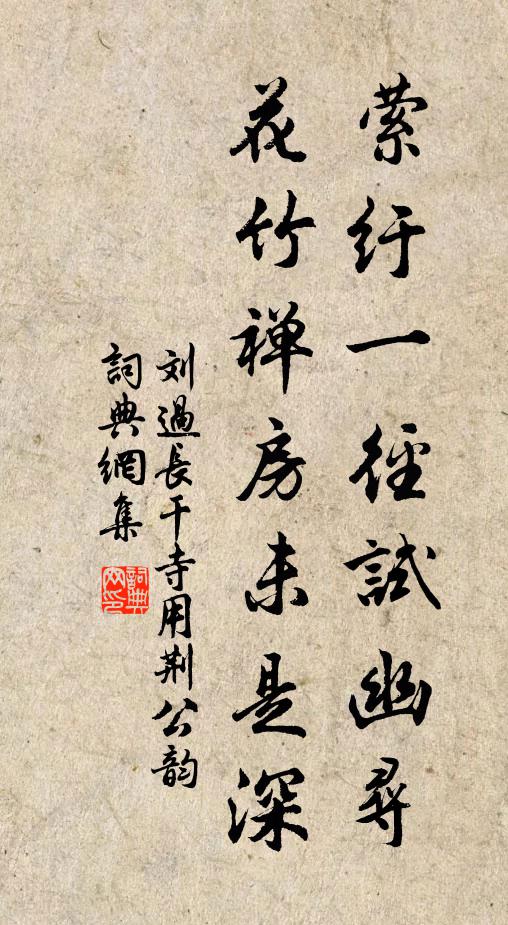 萦纡一径試幽尋
花竹禅房未是深
刘過長干寺用荆公韵
詞典網集
詞典网印